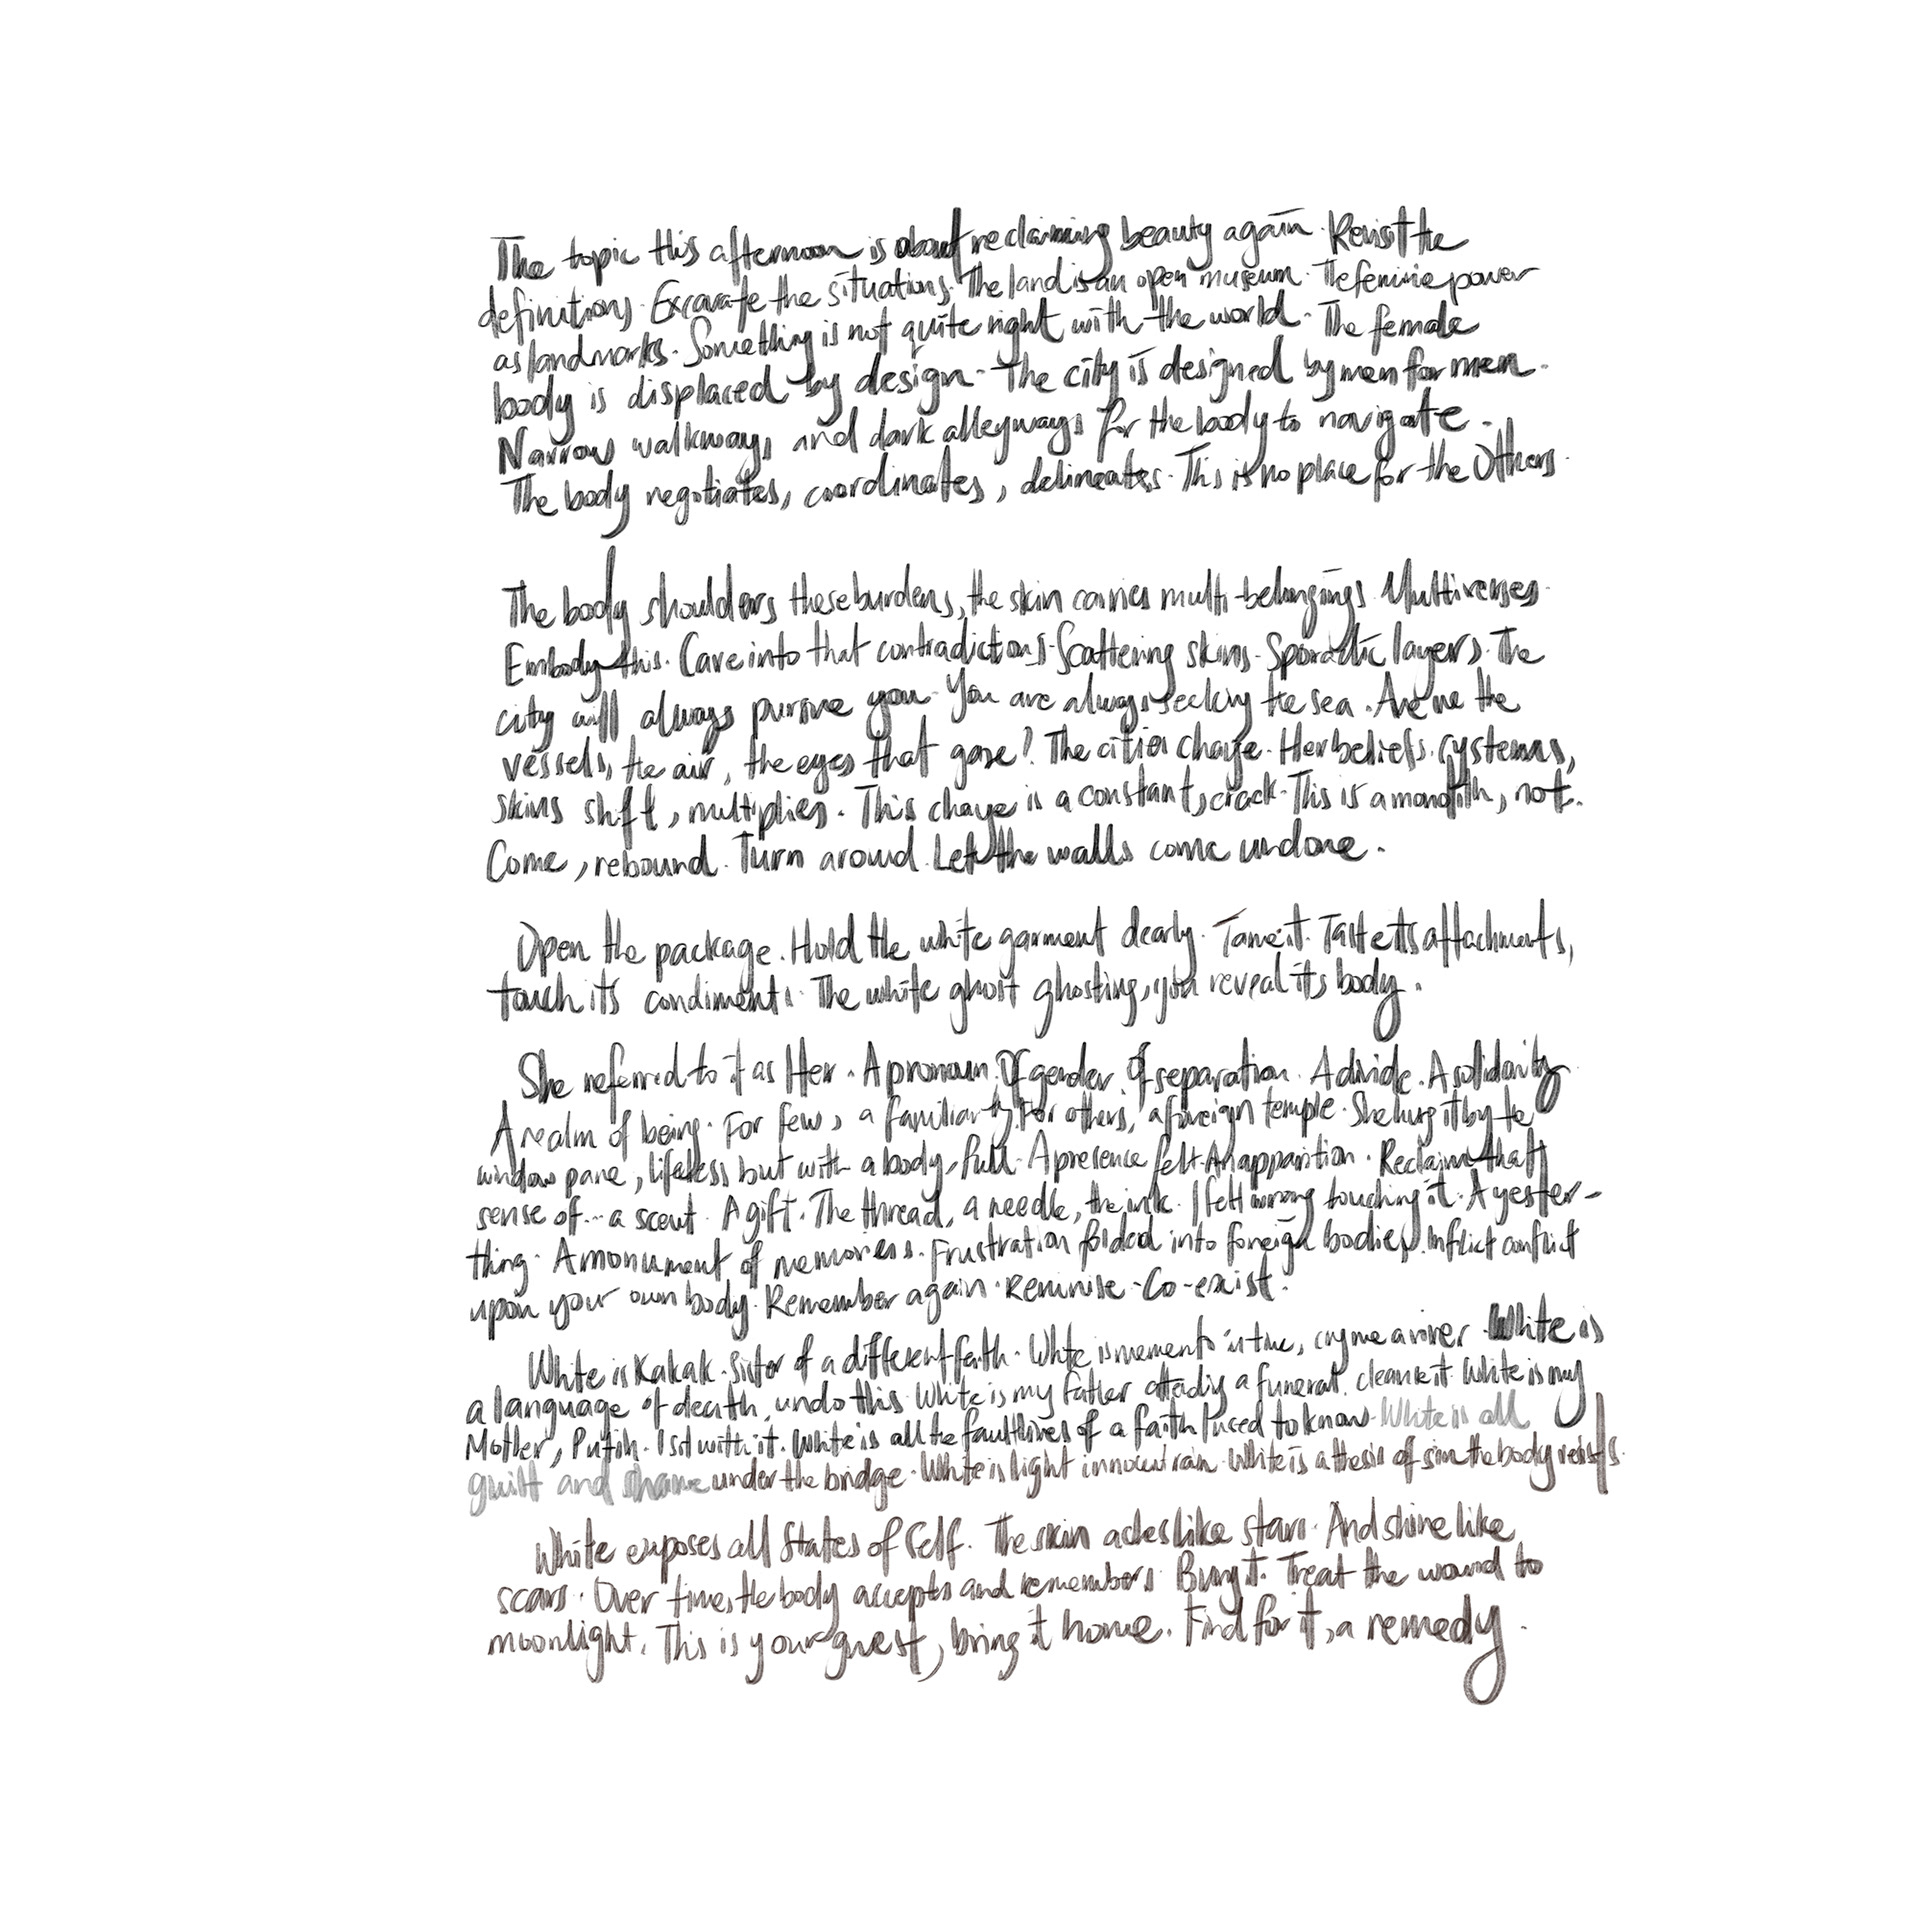 The topic this afternoon is about reclaiming beauty again. Revisit the
definitions. Excavate the situations. The land is an open museum. The feminine power
as landmarks. Something is not quite right with the world. The female
body is displaced by design. The city is designed by men for men.
Narrow walkways and dark alleyways for the body to navigate.
The body negotiates, coordinates, delineates. This is no place for the Others.
The body shoulders these burdens, the skin carries multi-belongings. Multiverses.
Embody this. Cave into that contradictions. Scattering skins. Sporadic layers. The
city will always pursue you. You are always seeking the sea. Are we the
vessels, the air, the eyes that gaze? The cities change. Her beliefs. systems,
skins shift, multiplies. This change is a constant, crack. This is a monolith, not.
Come, rebound. Turn around. Let the walls come undone.
Open the package. Hold the white garment dearly. Tame it. Taste its attachments,
touch its condiments. The white ghost ghosting, you reveal its body.
She referred to it as Her. A pronoun. Of gender. Of separation. A divide. A solidarity
A realm of being. For few, a familiarity. For others, a foreign temple. She hung it by the
window pane, lifeless but with a body, full. A presence felt. An apparition. Reclaim that
sense of... a scent. A gift. The thread, a needle, the ink. I felt wrong touching it. A yester-
thing. A monument of memories. Frustration folded into foreign bodies. Inflict conflict
upon your own body. Remember again. Reminise. Co-exist.
White is Kakak. Sister of a different faith. White is memento in time, cry me a river. White is
a language of death, undo this. White is my father attending a funeral. cleanse it. White is my
Mother, Putih. I sit with it. White is all the faultlines of a faith I used to know. White is all
guilt and shame under the bridge. White is light innocent rain. White is a thesis of sin the body resists.
White exposes all States of Self. The skin aches like stars. And shine like
scars. Over time, the body accepts and remembers. Bury it. Treat the wound to
moonlight. This is your guest, bring it home. Find for it, a remedy.